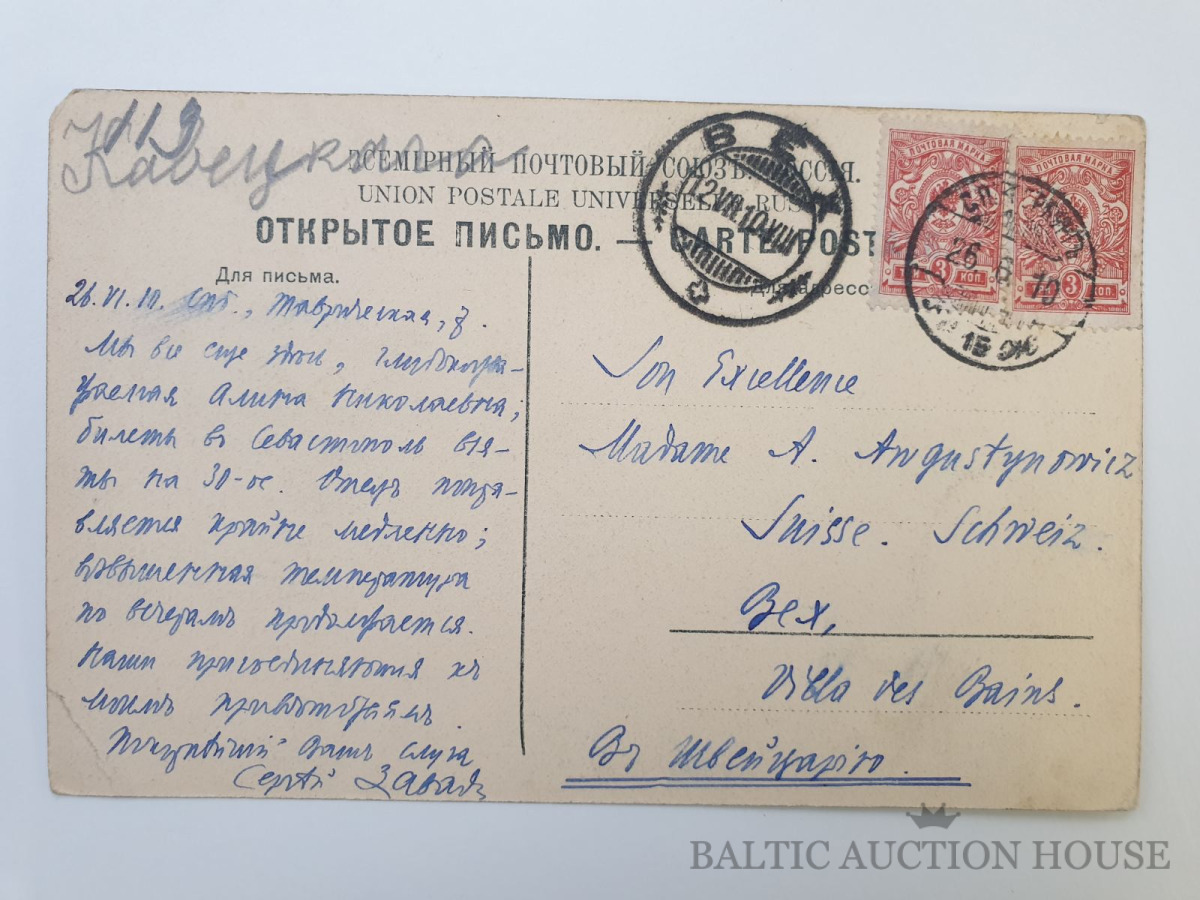 113
ВСЕМІРНЫЙ ПОЧТОВЫЙ СОЮЗЪ. РОССІЯ.
UNION POSTALE UNIVERSELLE. RUSSIE
ОТКРЫТОЕ ПИСЬМО. — CARTE POSTALE
Для письма.
Для адреса
BEX
12 VII 10 VIII
ПОЧТОВАЯ МАРКА
3 КОП.
ПОЧТОВАЯ МАРКА
3 КОП.
26 6 10
26. VI. 10. Спб., Таврическая, 7.
Мы все еще здѣсь, глубокоува-
жаемая Алина Николаевна;
билеты въ Севастополь взя-
ты на 30-ое. Отецъ попра-
вляется крайне медленно;
повышенная температура
по вечерамъ продолжается.
Наши присоединяются къ
моимъ привѣтствіямъ.
Вашъ слуга
Сергѣй
Son Excellence
Madame A. Augustynowicz
Suisse. Schweiz.
Bex,
Villa des Bains.
Въ Швейцарію.
BALTIC AUCTION HOUSE